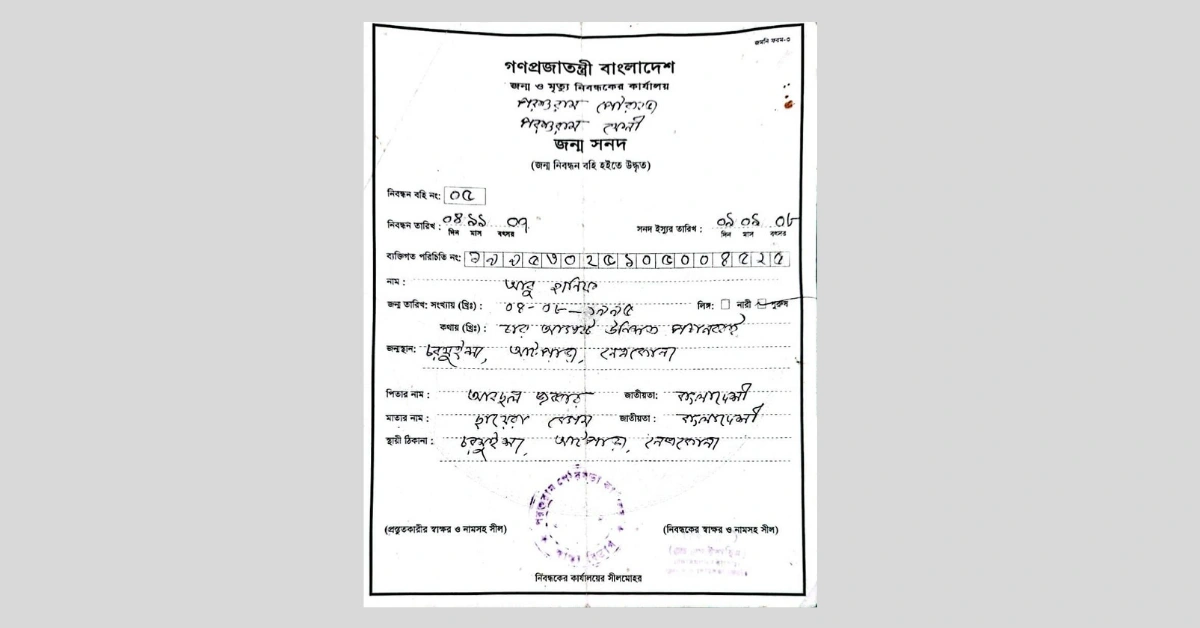 জমনি ফরম-৩
গণপ্রজাতন্ত্রী বাংলাদেশ
জন্ম ও মৃত্যু নিবন্ধকের কার্যালয়
পরশুরাম পৌরসভা
পরশুরাম ফেনী
জন্ম সনদ
(জন্ম নিবন্ধন বহি হইতে উদ্ধৃত)
নিবন্ধন বহি নং: ০৫
নিবন্ধন তারিখ : ০৪ ১১ ০৭ সনদ ইস্যুর তারিখ : ০৯ ০৯ ০৮
দিন মাস বৎসর দিন মাস বৎসর
ব্যক্তিগত পরিচিতি নং:
নাম : আবু হানিফ
জন্ম তারিখ: সংখ্যায় (খ্রিঃ) : ০৪-০৮-১৯৯৫ লিঙ্গ: নারী পুরুষ
কথায় (খ্রিঃ) : চার আগষ্ট উনিশশত পচানব্বই
জন্মস্থান: আটপাড়া, নেত্রকোনা
পিতার নাম : আবদুল জাতীয়তা: বাংলাদেশী
মাতার নাম : বেগম জাতীয়তা : বাংলাদেশী
স্থায়ী ঠিকানা : আটপাড়া, নেত্রকোনা
পরশুরাম পৌরসভা
(প্রস্তুতকারীর স্বাক্ষর ও নামসহ সীল) (নিবন্ধকের স্বাক্ষর ও নামসহ সীল)
নিবন্ধকের কার্যালয়ের সীলমোহর